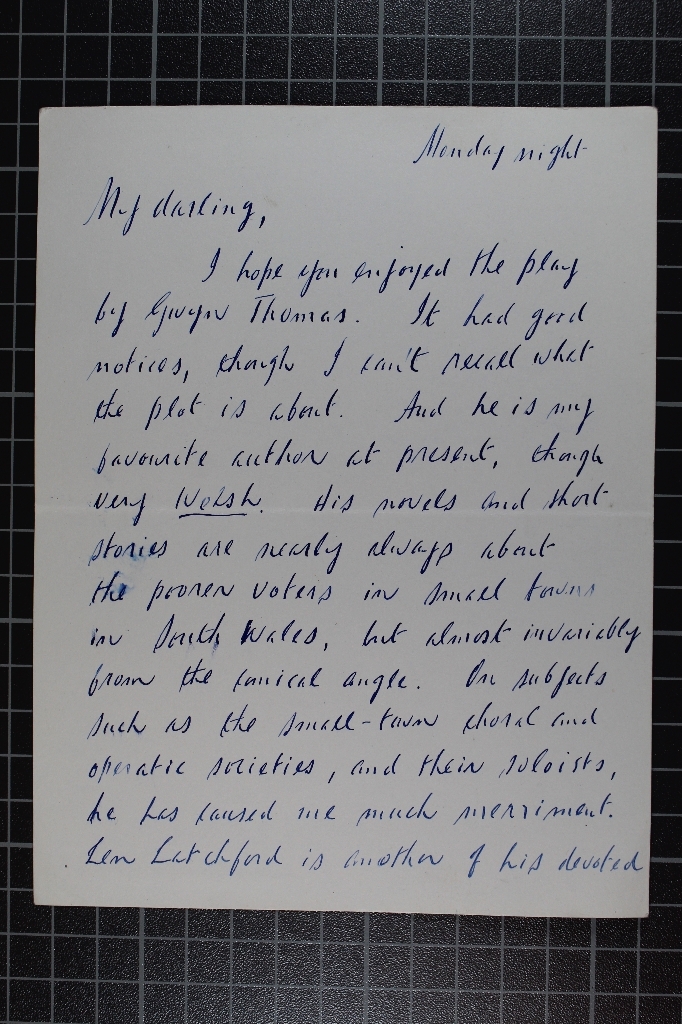 Monday night
My darling,
I hope you enjoyed the play
by Gwyn Thomas. It had good
notices, though I can't recall what
the plot is about. And he is my
favourite author at present, though
very Welsh. His novels and short
stories are nearly always about
the poorer voters in small towns
in South Wales, but almost invariably
from the comical angle. On subjects
such as the small-town choral and
operatic societies, and their soloists,
he has caused me much merriment.
Len Latchford is another of his devoted